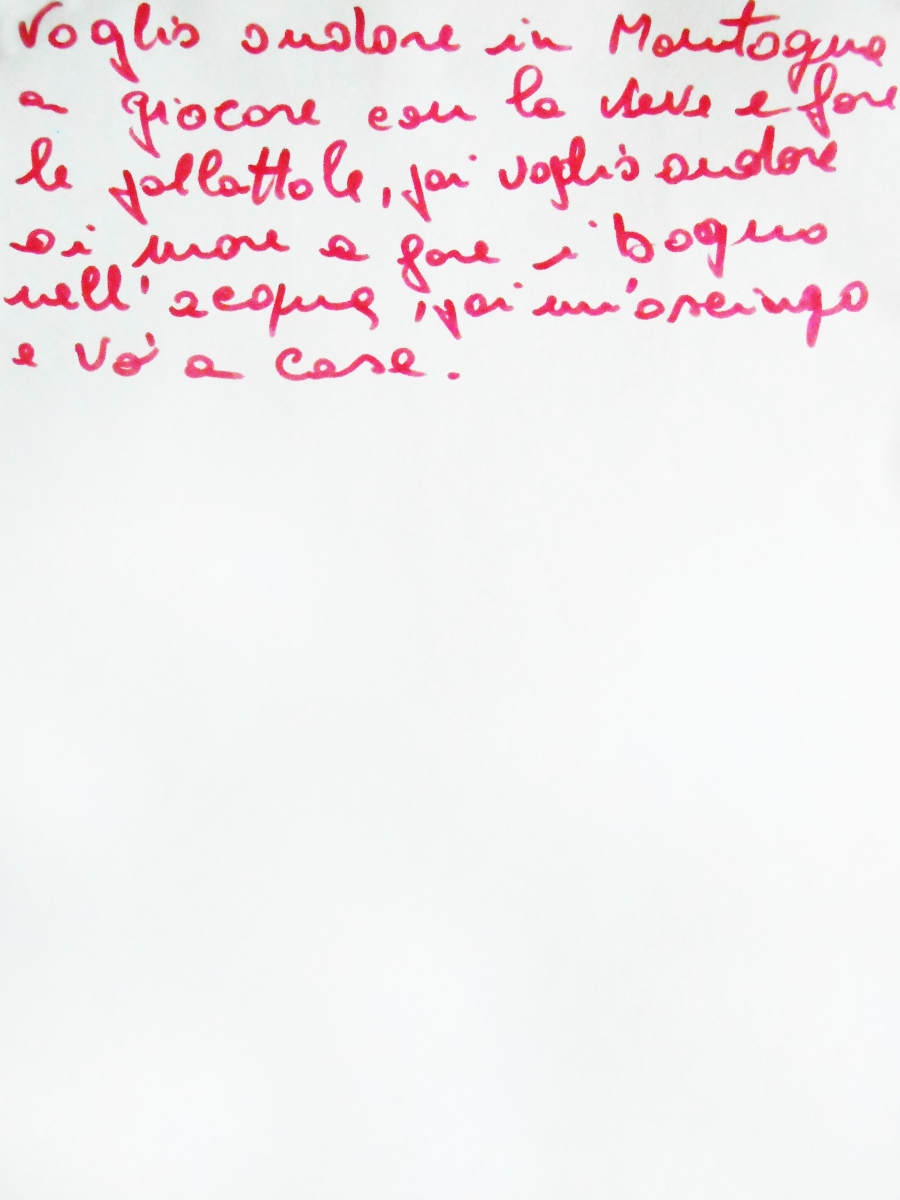 Voglio andare in Montagna
a giocare con la neve e fare
le pallattole, poi voglio andare
ai mare a fare i' bagno
nell'acqua, poi mi'asciugo
e vo' a casa.